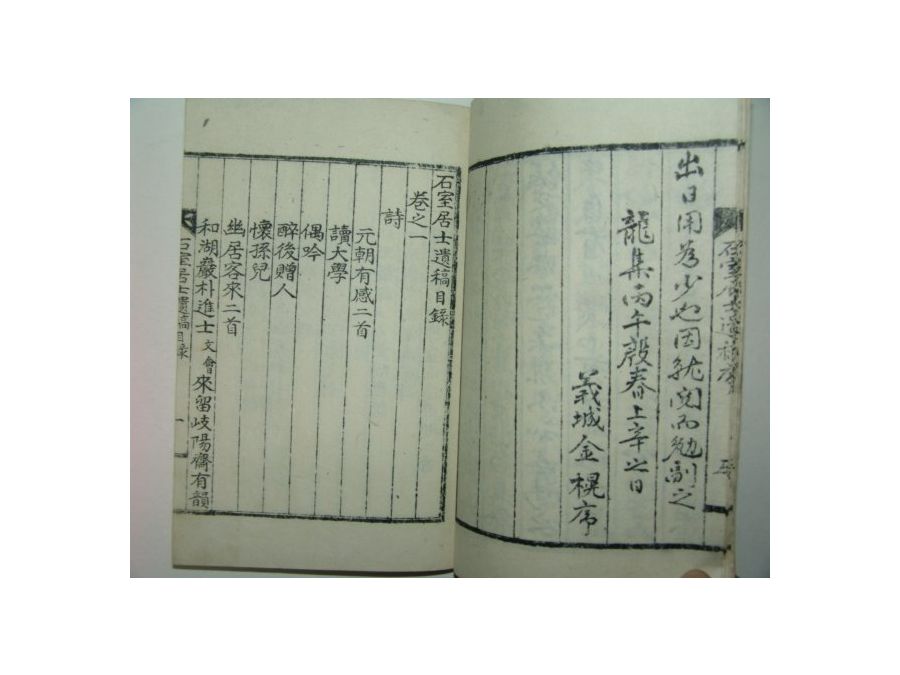 出日用為少也因就閱而勉副之
龍集丙午殷春上辛之日
義城金榥序
石室居士遺稿目錄
卷之一
詩
元朝有感二首
讀大學
偶吟
醉後贈人
懷孫兒
幽居客來二首
和湖巖朴進士文會來留岐陽齋有韻
石室居士遺稿目錄
一